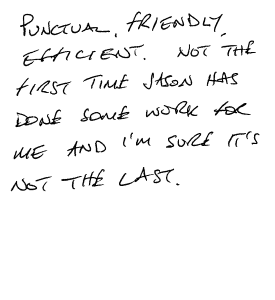 PUNCTUAL, FRIENDLY,
EFFICIENT. NOT THE
FIRST TIME JASON HAS
DONE SOME WORK FOR
ME AND I'M SURE IT'S
NOT THE LAST.